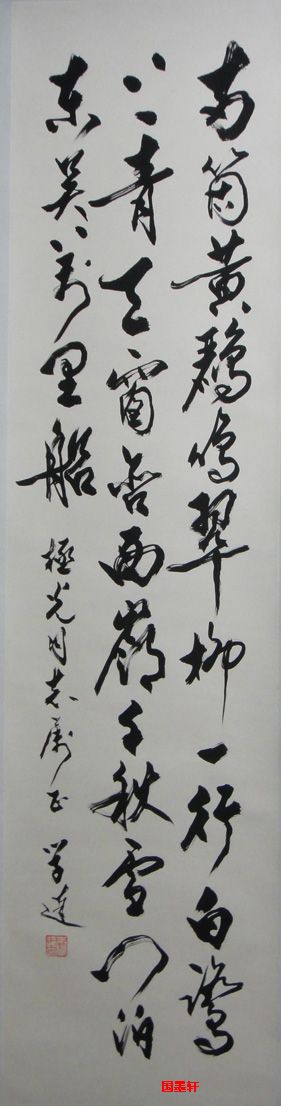 两箇黃鸝鳴翠柳一行白鷺
上青天窗含西嶺千秋雪門泊
東吳萬里船 極光同志属正 学達
国墨轩